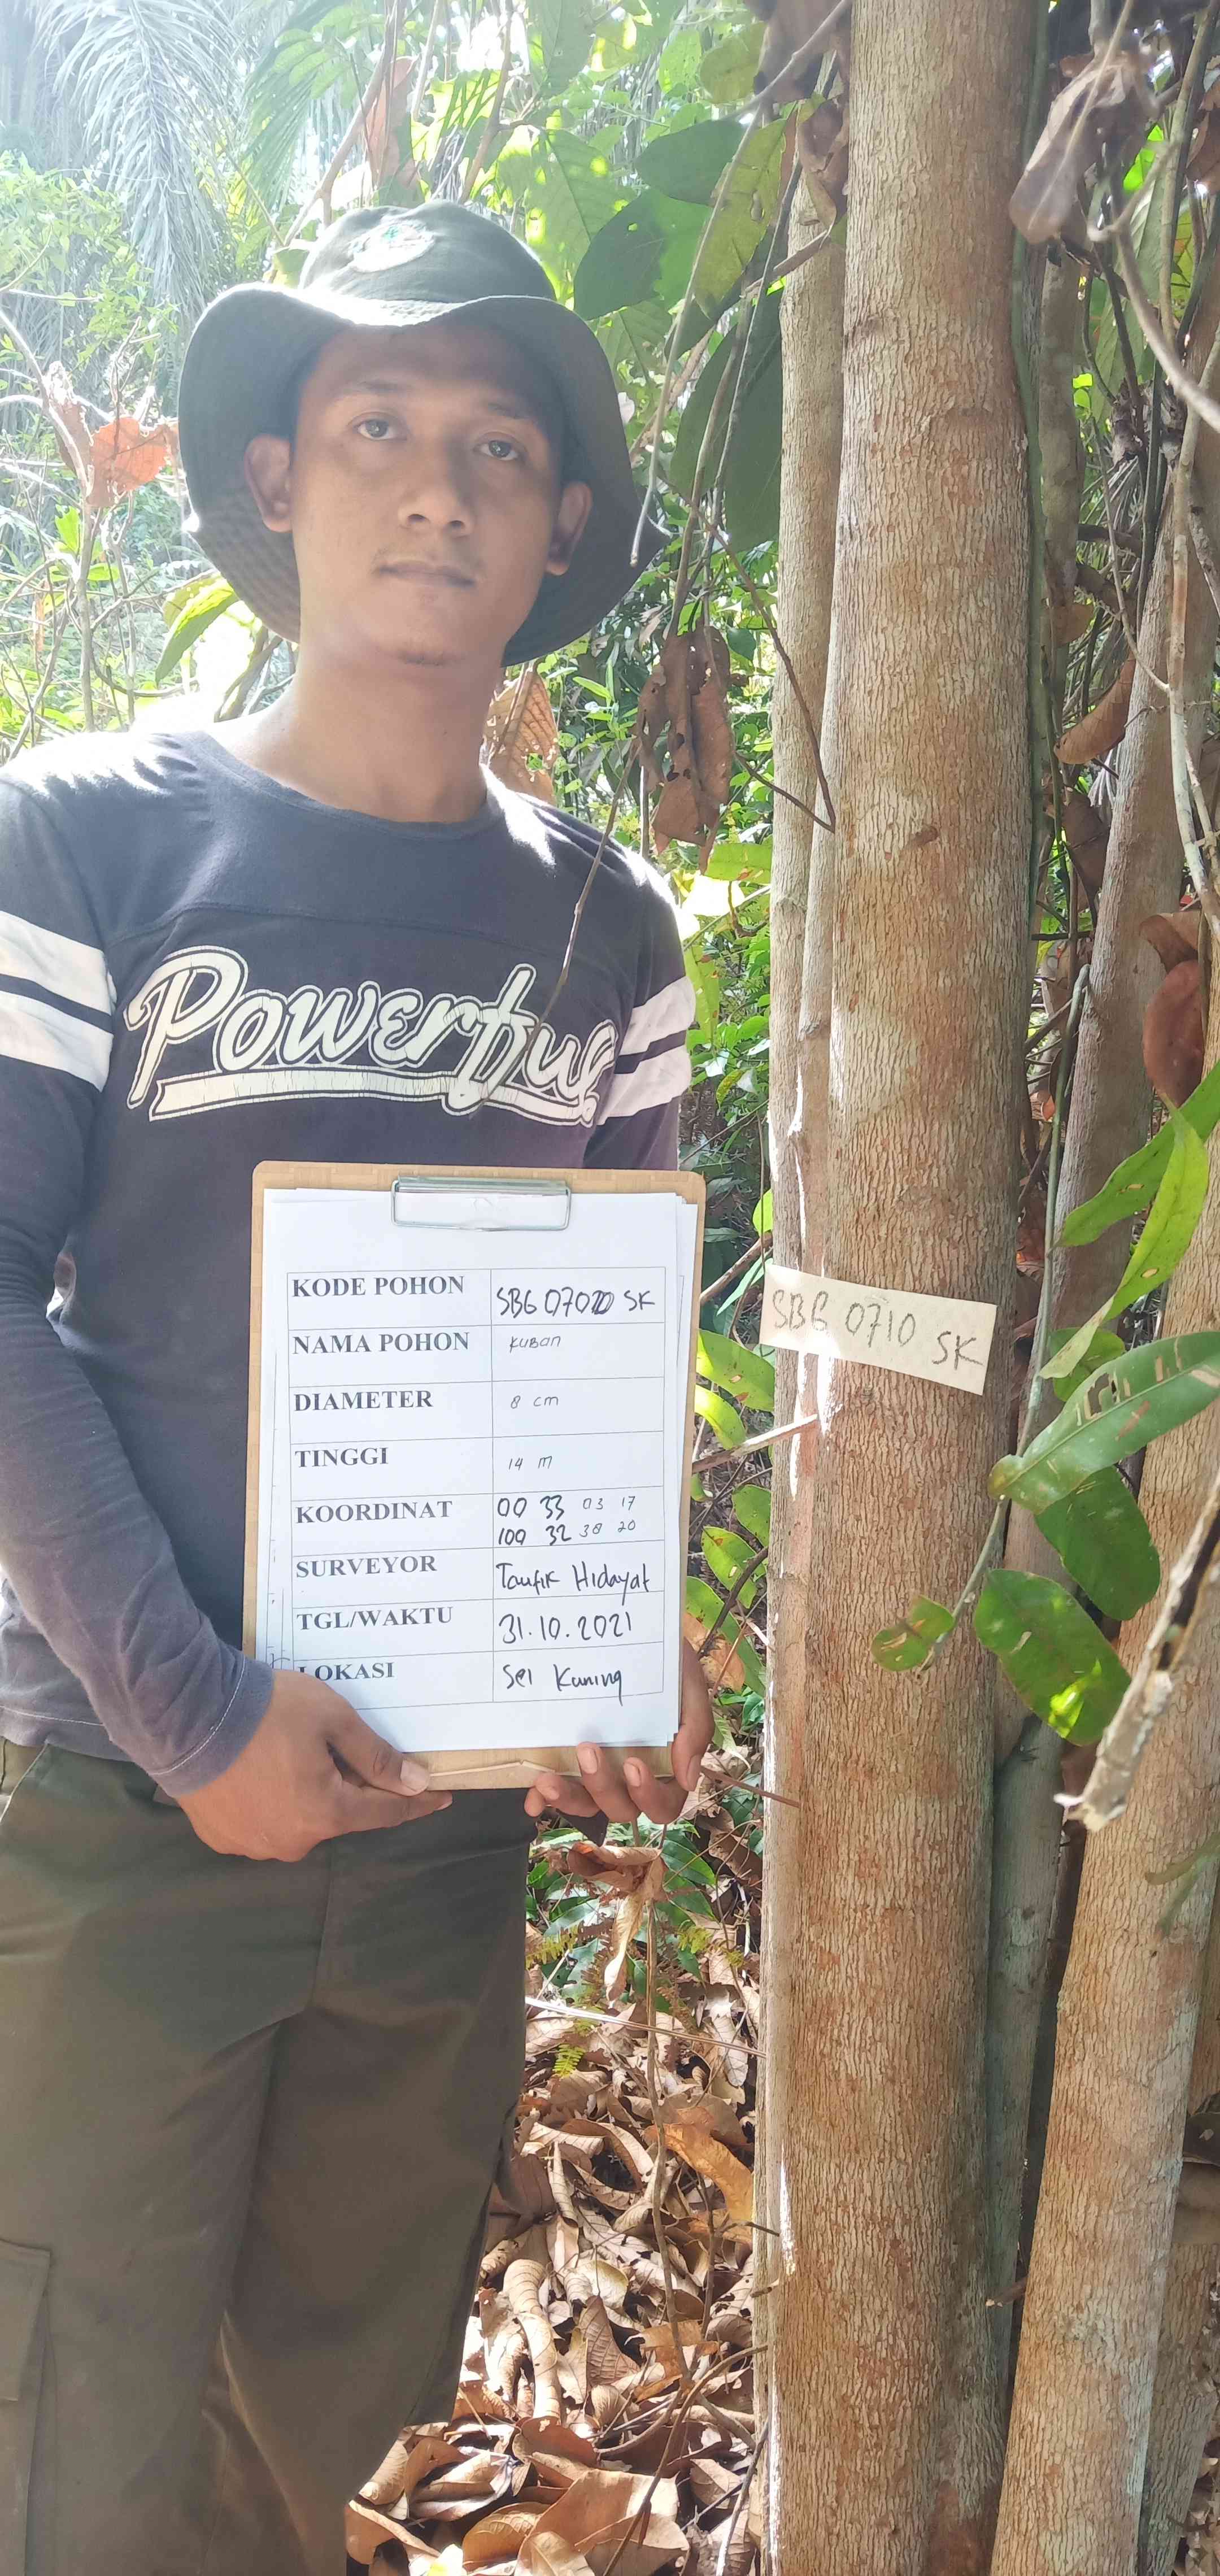 Powerpuff
KODE POHON SBG 0710 SK
NAMA POHON KUBAN
DIAMETER 8 cm
TINGGI 14 m
KOORDINAT 00 33 03 17
100 32 38 20
SURVEYOR Taufik Hidayat
TGL/WAKTU 31.10.2021
LOKASI Sei Kuning
SBG 0710 SK